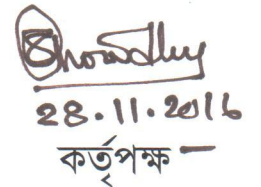 Chowdhury
28.11.2016
কর্তৃপক্ষ